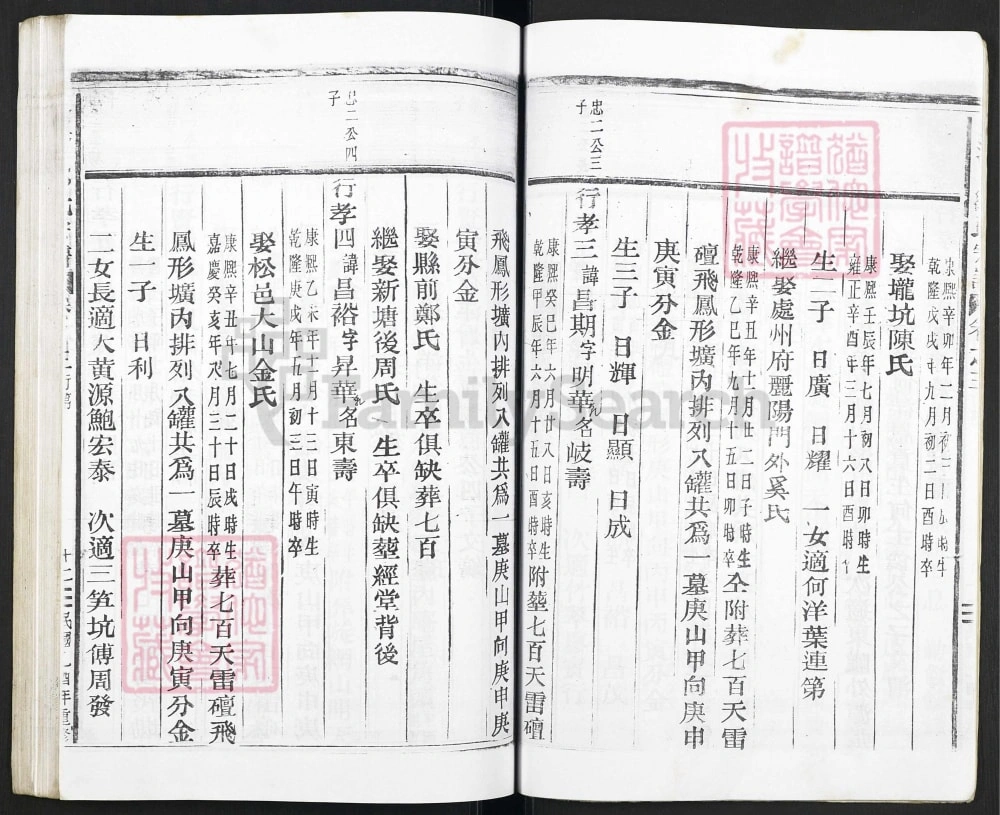 康熙辛卯年二月初三
乾隆戊戌年九月初二日酉時卒
娶壠坑陳氏
康熙壬辰年七月初八日卯時生
雍正辛酉年三月十六日酉時
生二子 日廣 日耀 一女適何洋葉連第
繼娶處州府麗陽門外奚氏
康熙辛丑年十月廿二日子時生
乾隆乙巳年九月十五日卯時卒
仝附葬七百天雷
礶飛鳳形壙內排列八罐共爲 墓庚山甲向庚申
庚寅分金
生三子 日輝 日顯 日成
忠二公三
子
行孝三諱昌期字明華名岐壽
康熙癸巳年六月廿八日亥時生
乾隆甲辰年六月十五日酉時卒
附塟七百天雷礶
飛鳳形壙內排列八罐共爲一墓庚山甲向庚申庚
寅分金
娶縣前鄭氏 生卒俱缺葬七百
繼娶新塘後周氏 生卒俱缺塟經堂背後
忠二公四
子
行孝四諱昌裕字昇華名東壽
康熙乙未年十月十三日寅時生
乾隆庚戌年五月初三日午時卒
娶松邑大山金氏
康熙辛丑年七月二十日戌時生
嘉慶癸亥年八月三十日辰時卒
葬七百天雷礶飛
鳳形壙內排列八罐共爲一墓庚山甲向庚寅分金
生一子 日利
二女長適大黄源鮑宏泰 次適三笋坑傅周發